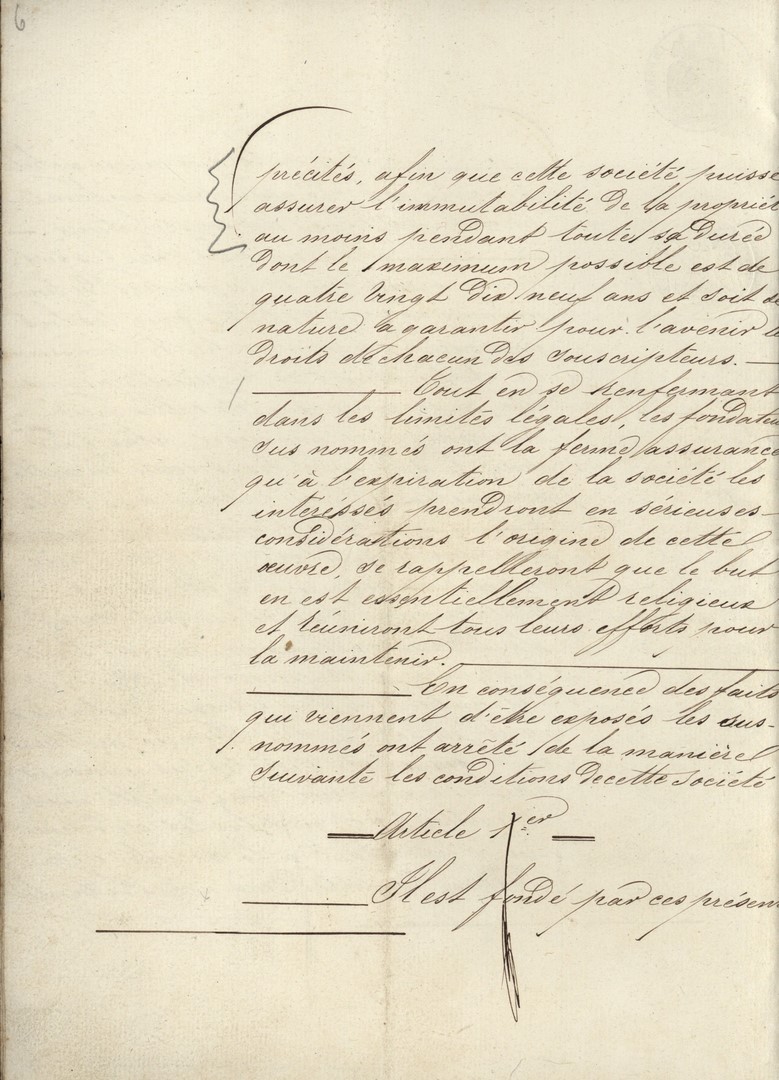 6
précités, afin que cette société puisse
assurer l'immutabilité de la propriét
au moins pendant toute sa durée
dont le maximum possible est de
quatre vingt dix neuf ans et soit de
nature à garantir pour l'avenir le
droits de chacun des souscripteurs.
Tout en se renfermant
dans les limites légales, les fondateu
sus nommés ont la ferme assurance
qu'à l'expiration de la société les
intéréssés prendront en sérieuses
considérations l'origine de cette
œuvre, se rappelleront que le but
en est essentiellement religieux
et réuniront tous leurs efforts pour
la maintenir.
En conséquence des faits
qui viennent d'être exposés les sus-
nommés ont arrêté de la manière
suivante les conditions de cette société
Article 1.er
Il est fondé par ces présen